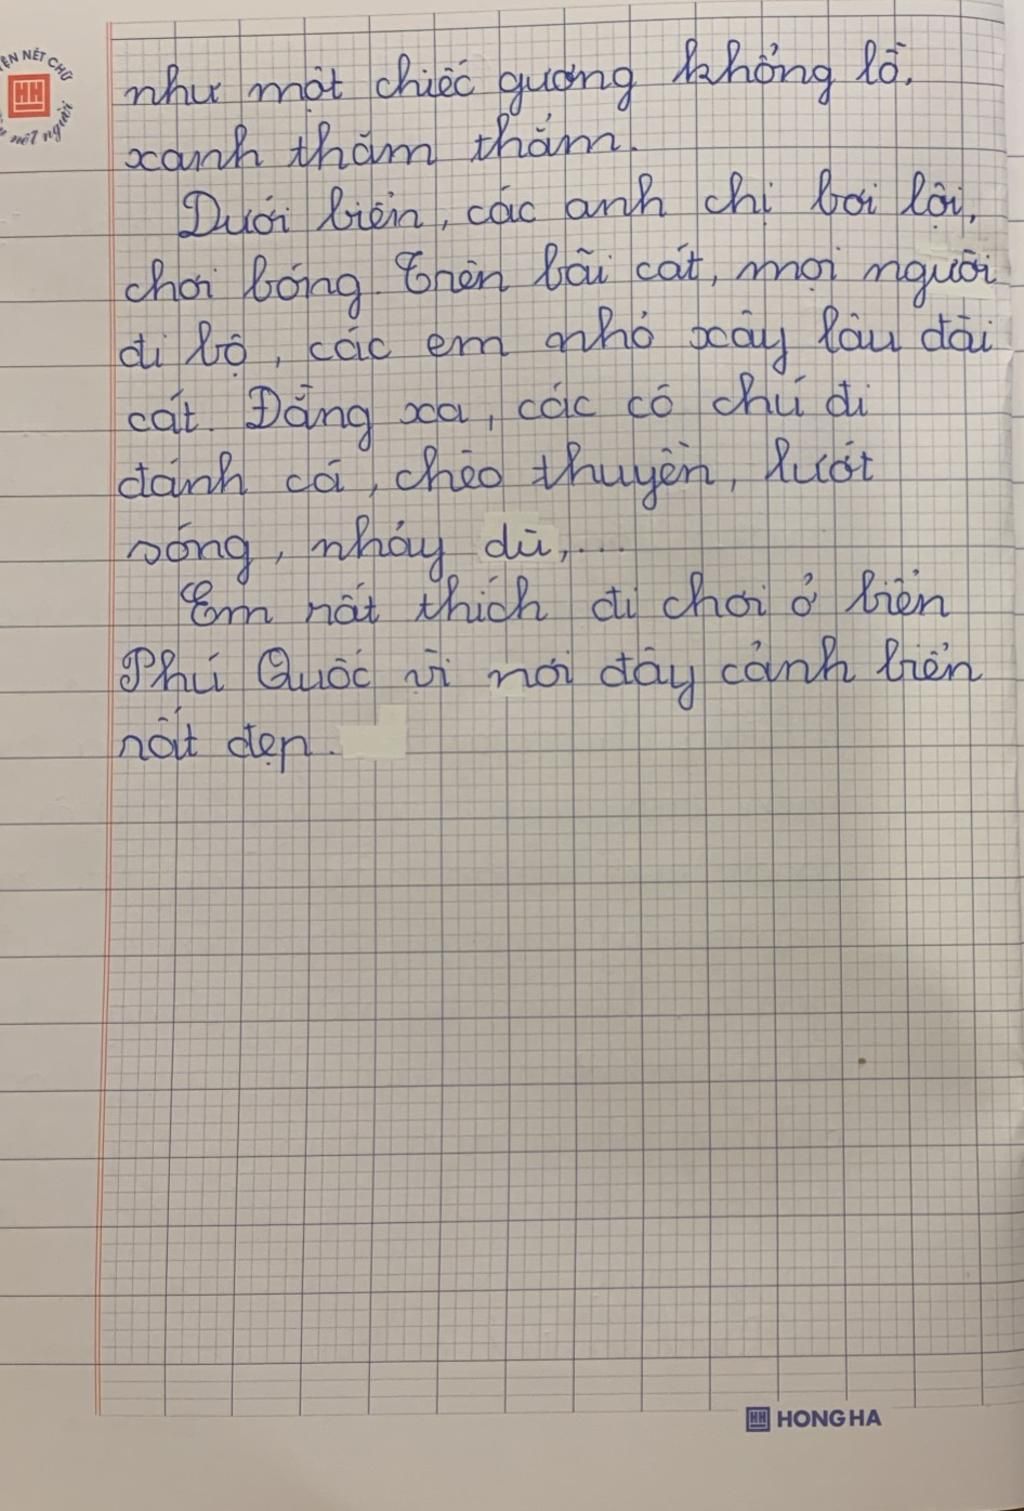 như một chiếc gương khổng lồ,
xanh thăm thẳm.
Dưới biển, các anh chị bơi lội,
chơi bóng. Trên bãi cát, mọi người
đi bộ, các em nhỏ xây lâu đài
cát. Đằng xa, các cô chú đi
đánh cá, chèo thuyền, lướt
sóng, nhảy dù,....
Em rất thích đi chơi ở biển
Phú Quốc vì nơi đây cảnh biển
rất đẹp.
HH
nết người
HH HONG HA